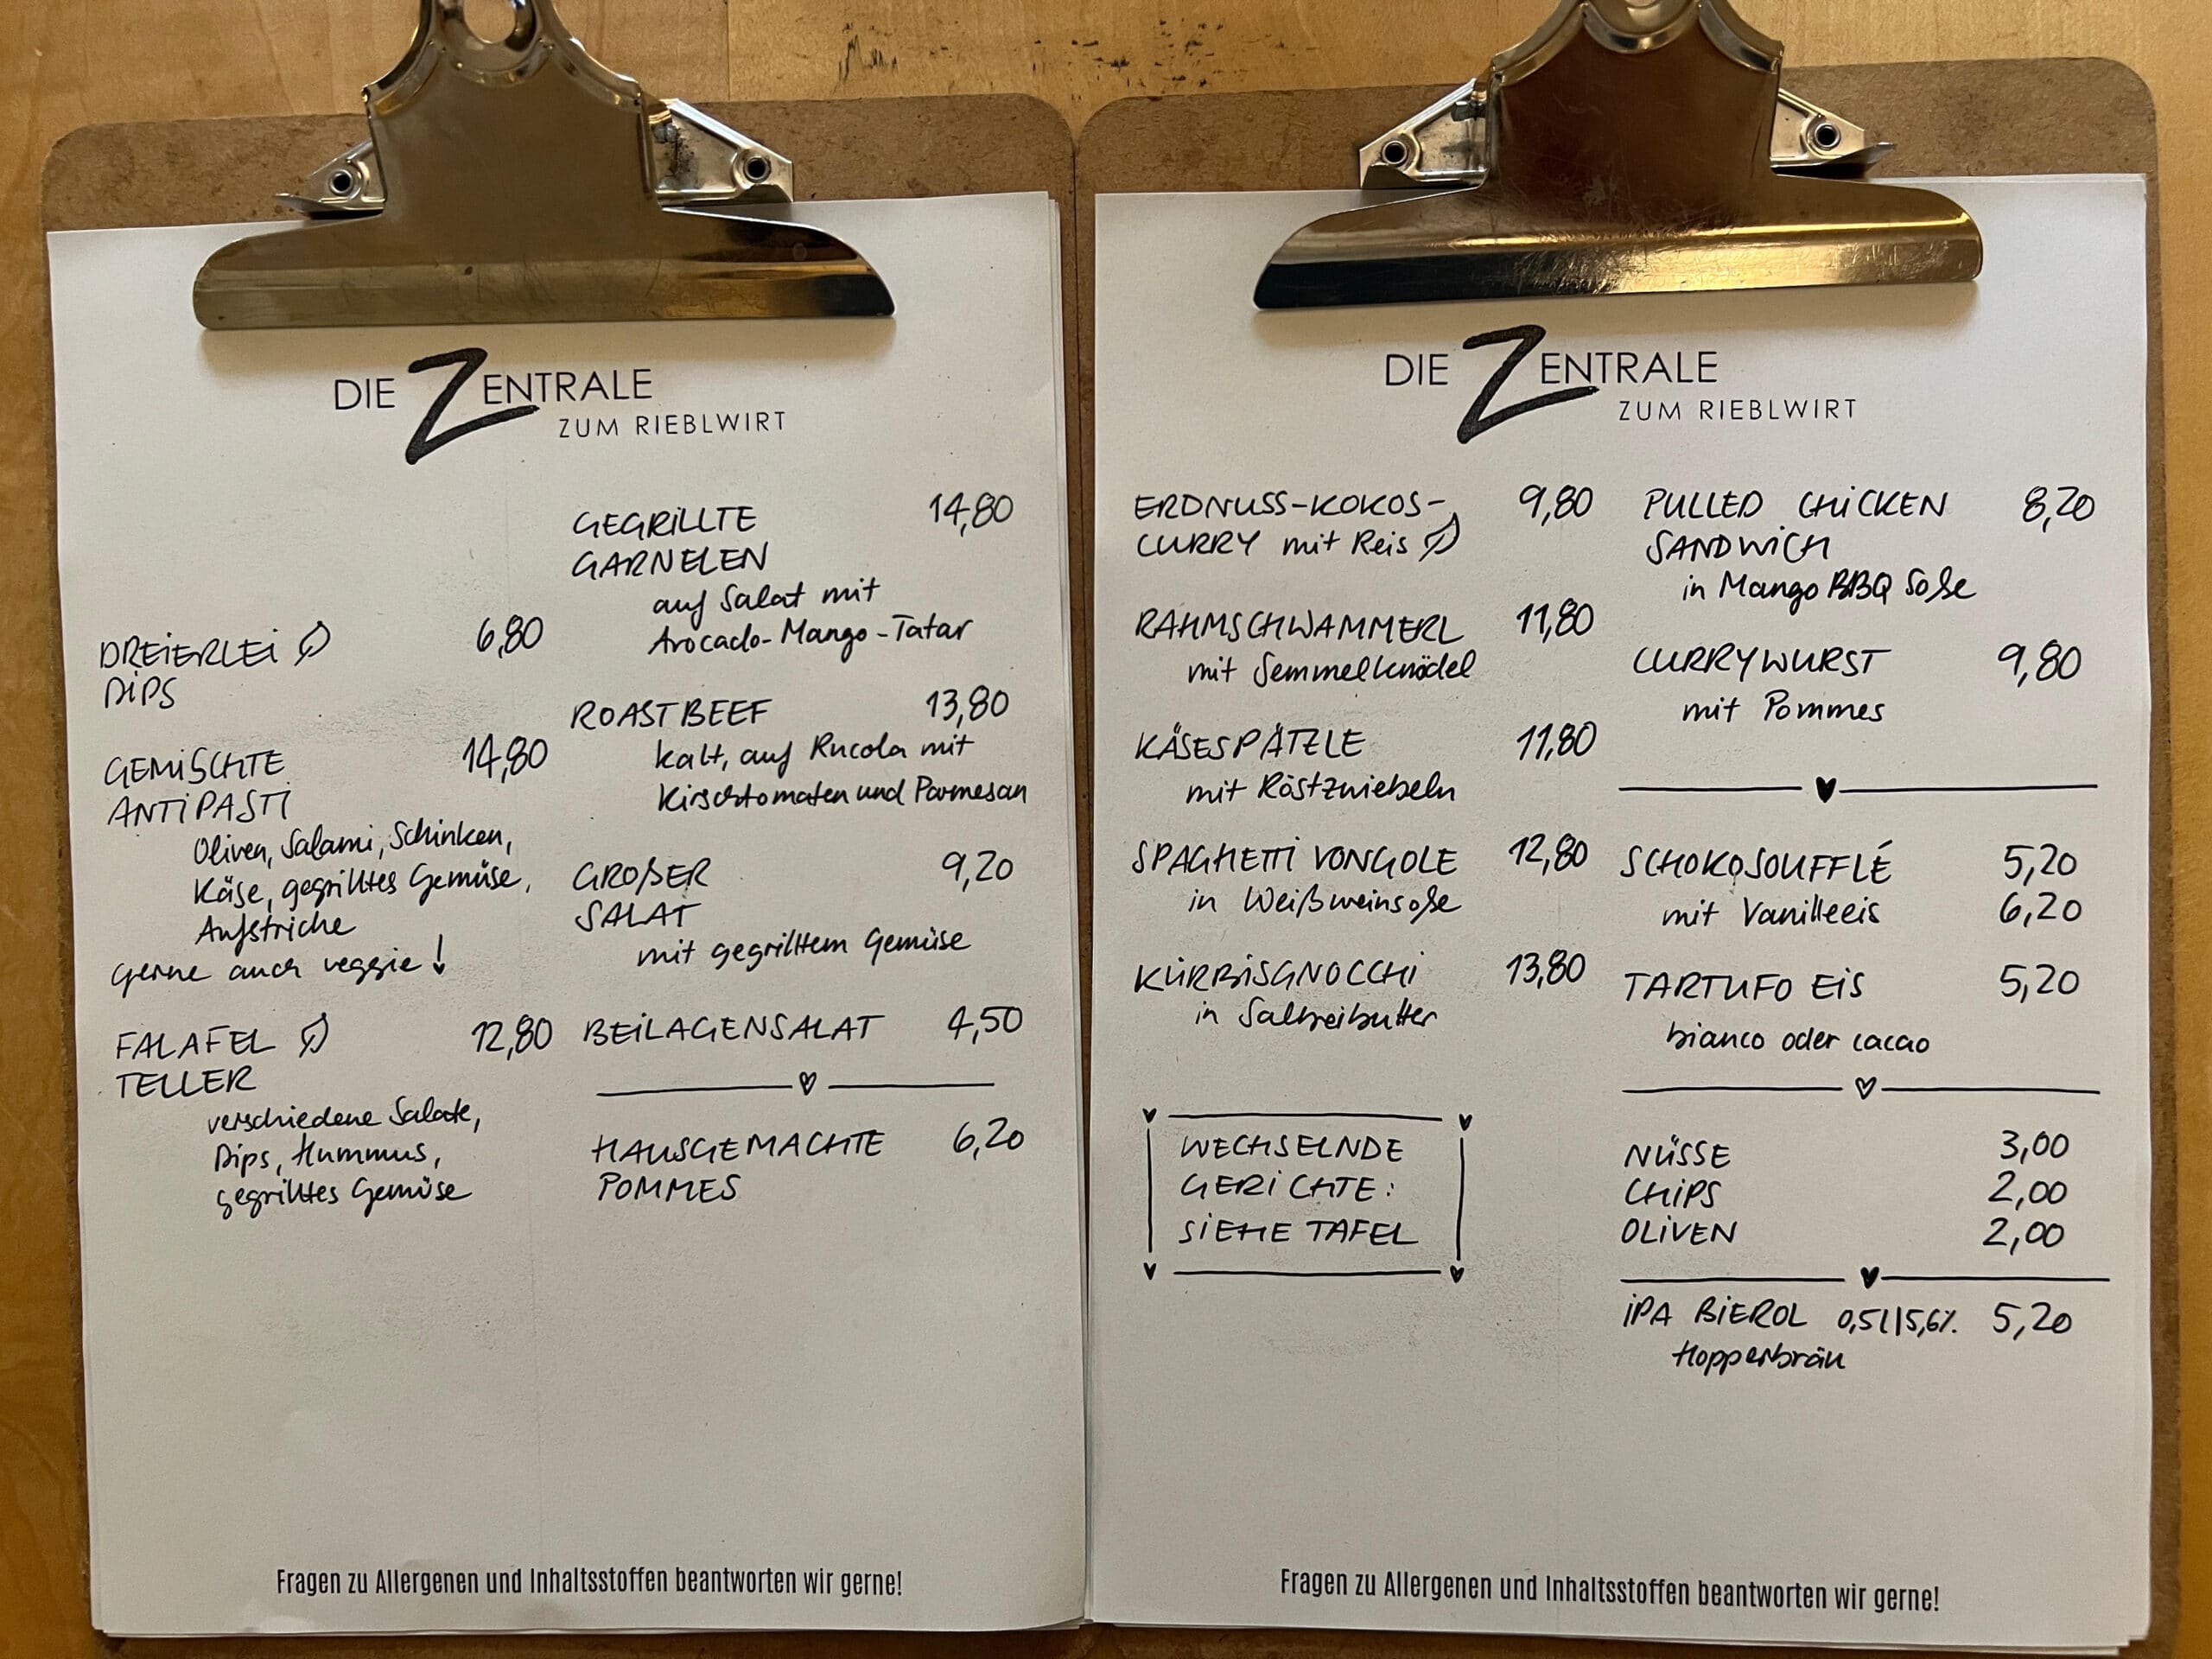 DIE ZENTRALE
ZUM RIEBLWIRT
DREIERLEI 6,80
DIPS
GEMISCHTE 14,80
ANTIPASTI
Oliven, Salami, Schinken,
Käse, gegrilltes Gemüse,
Aufstriche
gerne auch veggie!
FALAFEL 12,80
TELLER
verschiedene Salate,
Dips, Hummus,
gegrilltes Gemüse
GEGRILLTE 14,80
GARNELEN
auf Salat mit
Avocado-Mango-Tatar
ROASTBEEF 13,80
kalt, auf Rucola mit
Kirschtomaten und Parmesan
GROßER 9,20
SALAT
mit gegrilltem Gemüse
BEILAGENSALAT 4,50
HAUSGEMACHTE 6,20
POMMES
Fragen zu Allergenen und Inhaltsstoffen beantworten wir gerne!
DIE ZENTRALE
ZUM RIEBLWIRT
ERDNUSS-KOKOS- 9,80
CURRY mit Reis
RAHMSCHWAMMERL 11,80
mit Semmelknödel
KÄSESPÄTZLE 11,80
mit Röstzwiebeln
SPAGHETTI VONGOLE 12,80
in Weißweinsoße
KÜRBISGNOCCHI 13,80
in Salbeibutter
WECHSELNDE
GERICHTE:
SIEHE TAFEL
PULLED CHICKEN 8,20
SANDWICH
in Mango BBQ Soße
CURRYWURST 9,80
mit Pommes
SCHOKOSOUFFLÉ 5,20
mit Vanilleeis 6,20
TARTUFO EIS 5,20
bianco oder cacao
NÜSSE 3,00
CHIPS 2,00
OLIVEN 2,00
IPA BIEROL 0,5l|5,6% 5,20
Hopperbräu
Fragen zu Allergenen und Inhaltsstoffen beantworten wir gerne!